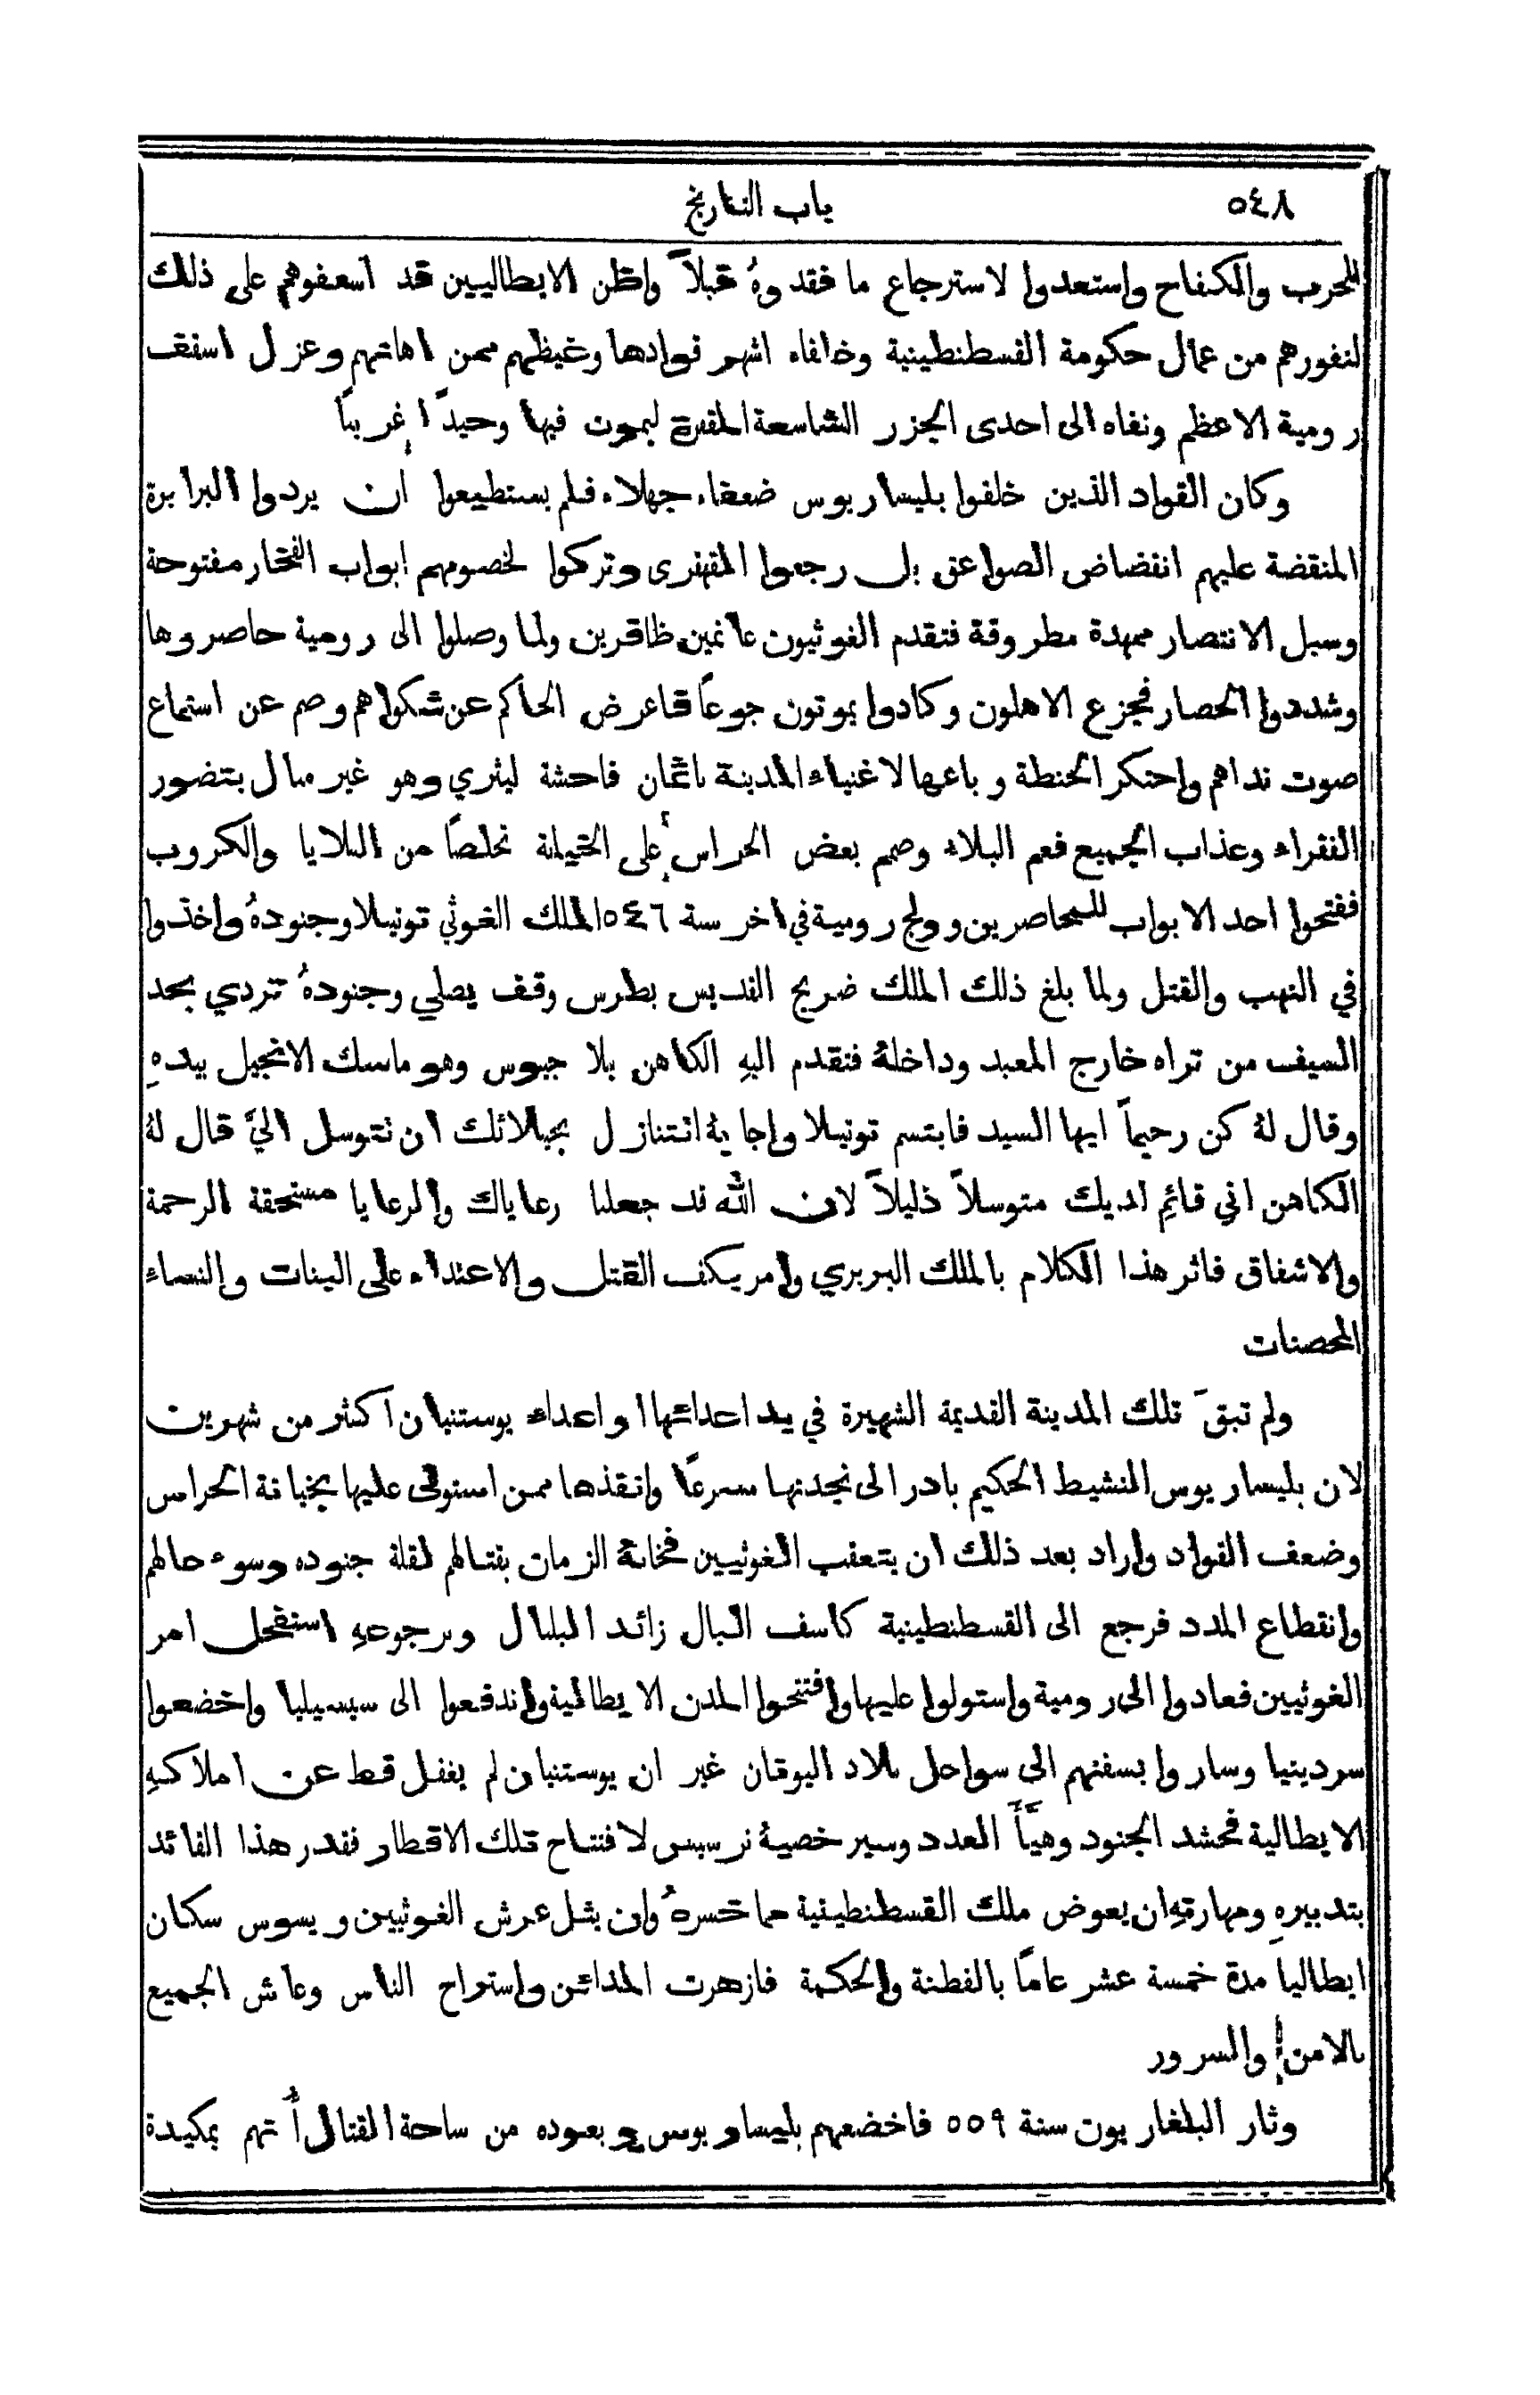 ٥٤٨
باب التاريخ
للحرب والكفاح واستعدوا لاسترجاع ما فقدوهُ قبلاً واظن الايطاليين قد اسعفوهم على ذلك
لنفورهم من عمال حكومة القسطنطينية وخلفاء اشهر قوادها وغيظهم ممن اهانهم وعزل اسقف
رومية الاعظم ونفاه الى احدى الجزر الشاسعة المقفرة ليموت فيها وحيداً غريباً
وكان القواد الذين خلفوا بليساريوس ضعفاء جهلاء فلم يستطيعوا ان يردوا البرابرة
المنقضة عليهم انقضاض الصواعق بل رجعوا القهقرى وتركوا لخصومهم ابواب الفخار مفتوحة
وسبل الانتصار ممهدة مطروقة فتقدم الغوثيون غانمين ظافرين ولما وصلوا الى رومية حاصروها
وشددوا الحصار فجزع الاهلون وكادوا يموتون جوعاً فاعرض الحاكم عن شكواهم وصم عن استماع
صوت نداهم واحتكر الحنطة وباعها لاغنياء المدينة باثمان فاحشة ليثري وهو غير مبال بتضور
الفقراء وعذاب الجميع فعم البلاء وصمم بعض الحراس على الخيانة تخلصاً من البلايا والكروب
ففتحوا احد الابواب للمحاصرين وولج رومية في اخر سنة ٥٤٦ الملك الغوثي توتيلا وجنودهُ واخذوا
في النهب والقتل ولما بلغ ذلك الملك ضريح القديس بطرس وقف يصلي وجنودهُ تردي بحد
السيف من تراه خارج المعبد وداخلهُ فتقدم اليهِ الكاهن بلا جيوس وهو ماسك الانجيل بيدهِ
وقال لهُ كن رحيماً ايها السيد فابتسم توتيلا واجابهُ اتتنازل بجلالك ان تتوسل اليَّ قال لهُ
الكاهن اني قائم لديك متوسلاً ذليلاً لان الله قد جعلنا رعاياك والرعايا مستحقة الرحمة
والاشفاق فاثر هذا الكلام بالملك البربري وامر بكف القتل والاعتداء على البنات والنساء
المحصنات
ولم تبقَ تلك المدينة القديمة الشهيرة في يد اعدائها اواعداء يوستنيان اكثر من شهرين
لان بليساريوس النشيط الحكيم بادر الى نجدتها مسرعاً وانقذها ممن استولى عليها بخيانة الحراس
وضعف القواد واراد بعد ذلك ان يتعقب الغوثيين فخانهُ الزمان بقتالهم لقلة جنوده وسوء حالهم
وانقطاع المدد فرجع الى القسطنطينية كاسف البال زائد البلبال وبرجوعهِ استفحل امر
الغوثيين فعادوا الى رومية واستولوا عليها وافتتحوا المدن الايطالية واندفعوا الى سيسيليا واخضعوا
سردينيا وساروا بسفنهم الى سواحل بلاد اليونان غير ان يوستنيان لم يغفل قط عن املاكهِ
الايطالية فحشد الجنود وهيَّأَ العدد وسير خصيهُ نرسيس لافتتاح تلك الاقطار فقدر هذا القائد
بتدبيرهِ ومهارتهِ ان يعوض ملك القسطنطينية مما خسرهُ وان يثل عرش الغوثيين ويسوس سكان
ايطاليا مدة خمسة عشر عاماً بالفطنة والحكمة فازهرت المدائن واستراح الناس وعاش الجميع
بالامن والسرور
وثار البلغاريون سنة ٥٥٩ فاخضعهم بليساريوس وبعوده من ساحة القتال اُتهم بمكيدة